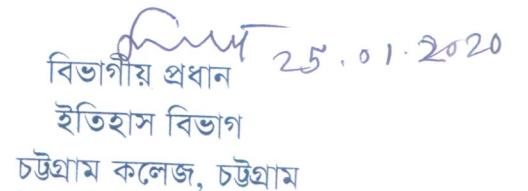 25.01.2020
বিভাগীয় প্রধান
ইতিহাস বিভাগ
চট্টগ্রাম কলেজ, চট্টগ্রাম